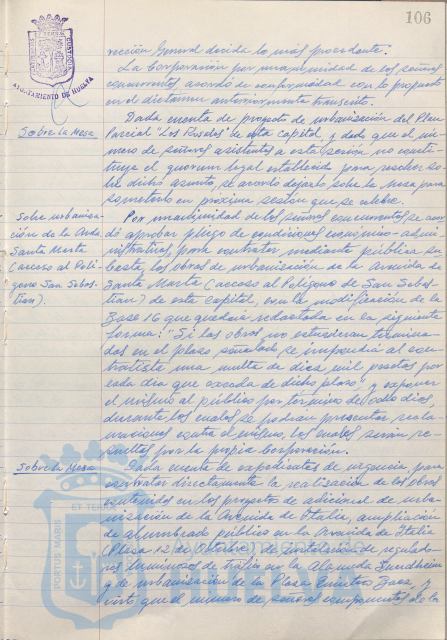 106
AYUNTAMIENTO DE HUELVA
rección General decida lo más procedente.
La Corporación por unanimidad de los señores
concurrentes acordó de conformidad con lo propuesto
en el dictamen anteriormente transcrito.
Sobre la Mesa
Dada cuenta de proyecto de urbanización del Plan
Parcial "Los Rosales" de esta capital, y dado que el nú-
mero de señores asistentes a esta sesión no consti-
tuye el quorum legal establecido para resolver so-
bre dicho asunto, se acordó dejarlo sobre la mesa para
someterlo en próxima sesión que se celebre.
Sobre urbaniza-
ción de la Avda.
Santa Marta
(acceso al Polí-
gono San Sebas-
tian).
Por unanimidad de los señores concurrentes se acor-
dó aprobar pliego de condiciones económico-admi-
nistrativas, para contratar mediante pública su-
basta, las obras de urbanización de la Avenida de
Santa Marta (acceso al Polígono de San Sebas-
tian) de esta capital, con la modificación de la
Base 16 que quedará redactada en la siguiente
forma: "Si las obras no estuvieran termina-
das en el plazo señalado se impondrá al con-
tratista una multa de diez mil pesetas por
cada día que exceda de dicho plazo", y exponer
el mismo al público por término de ocho días,
durante los cuales se podrán presentar recla-
maciones contra el mismo, los cuales serán re-
sueltas por la propia Corporación.
Sobre la Mesa
Dada cuenta de expedientes de urgencia, para
contratar directamente la realización de las obras
contenidas en los proyectos de adicional de urba-
nización de la Avenida de Italia, ampliación
de alumbrado público en la Avenida de Italia
(Plaza 12 de Octubre), de instalación de regulado-
res luminosos de tráfico en la Alameda Sundheim
y de urbanización de la Plaza Quintero Baez, y
visto que el número de señores componentes de la
PORTUS MARIS
ET TERRAE